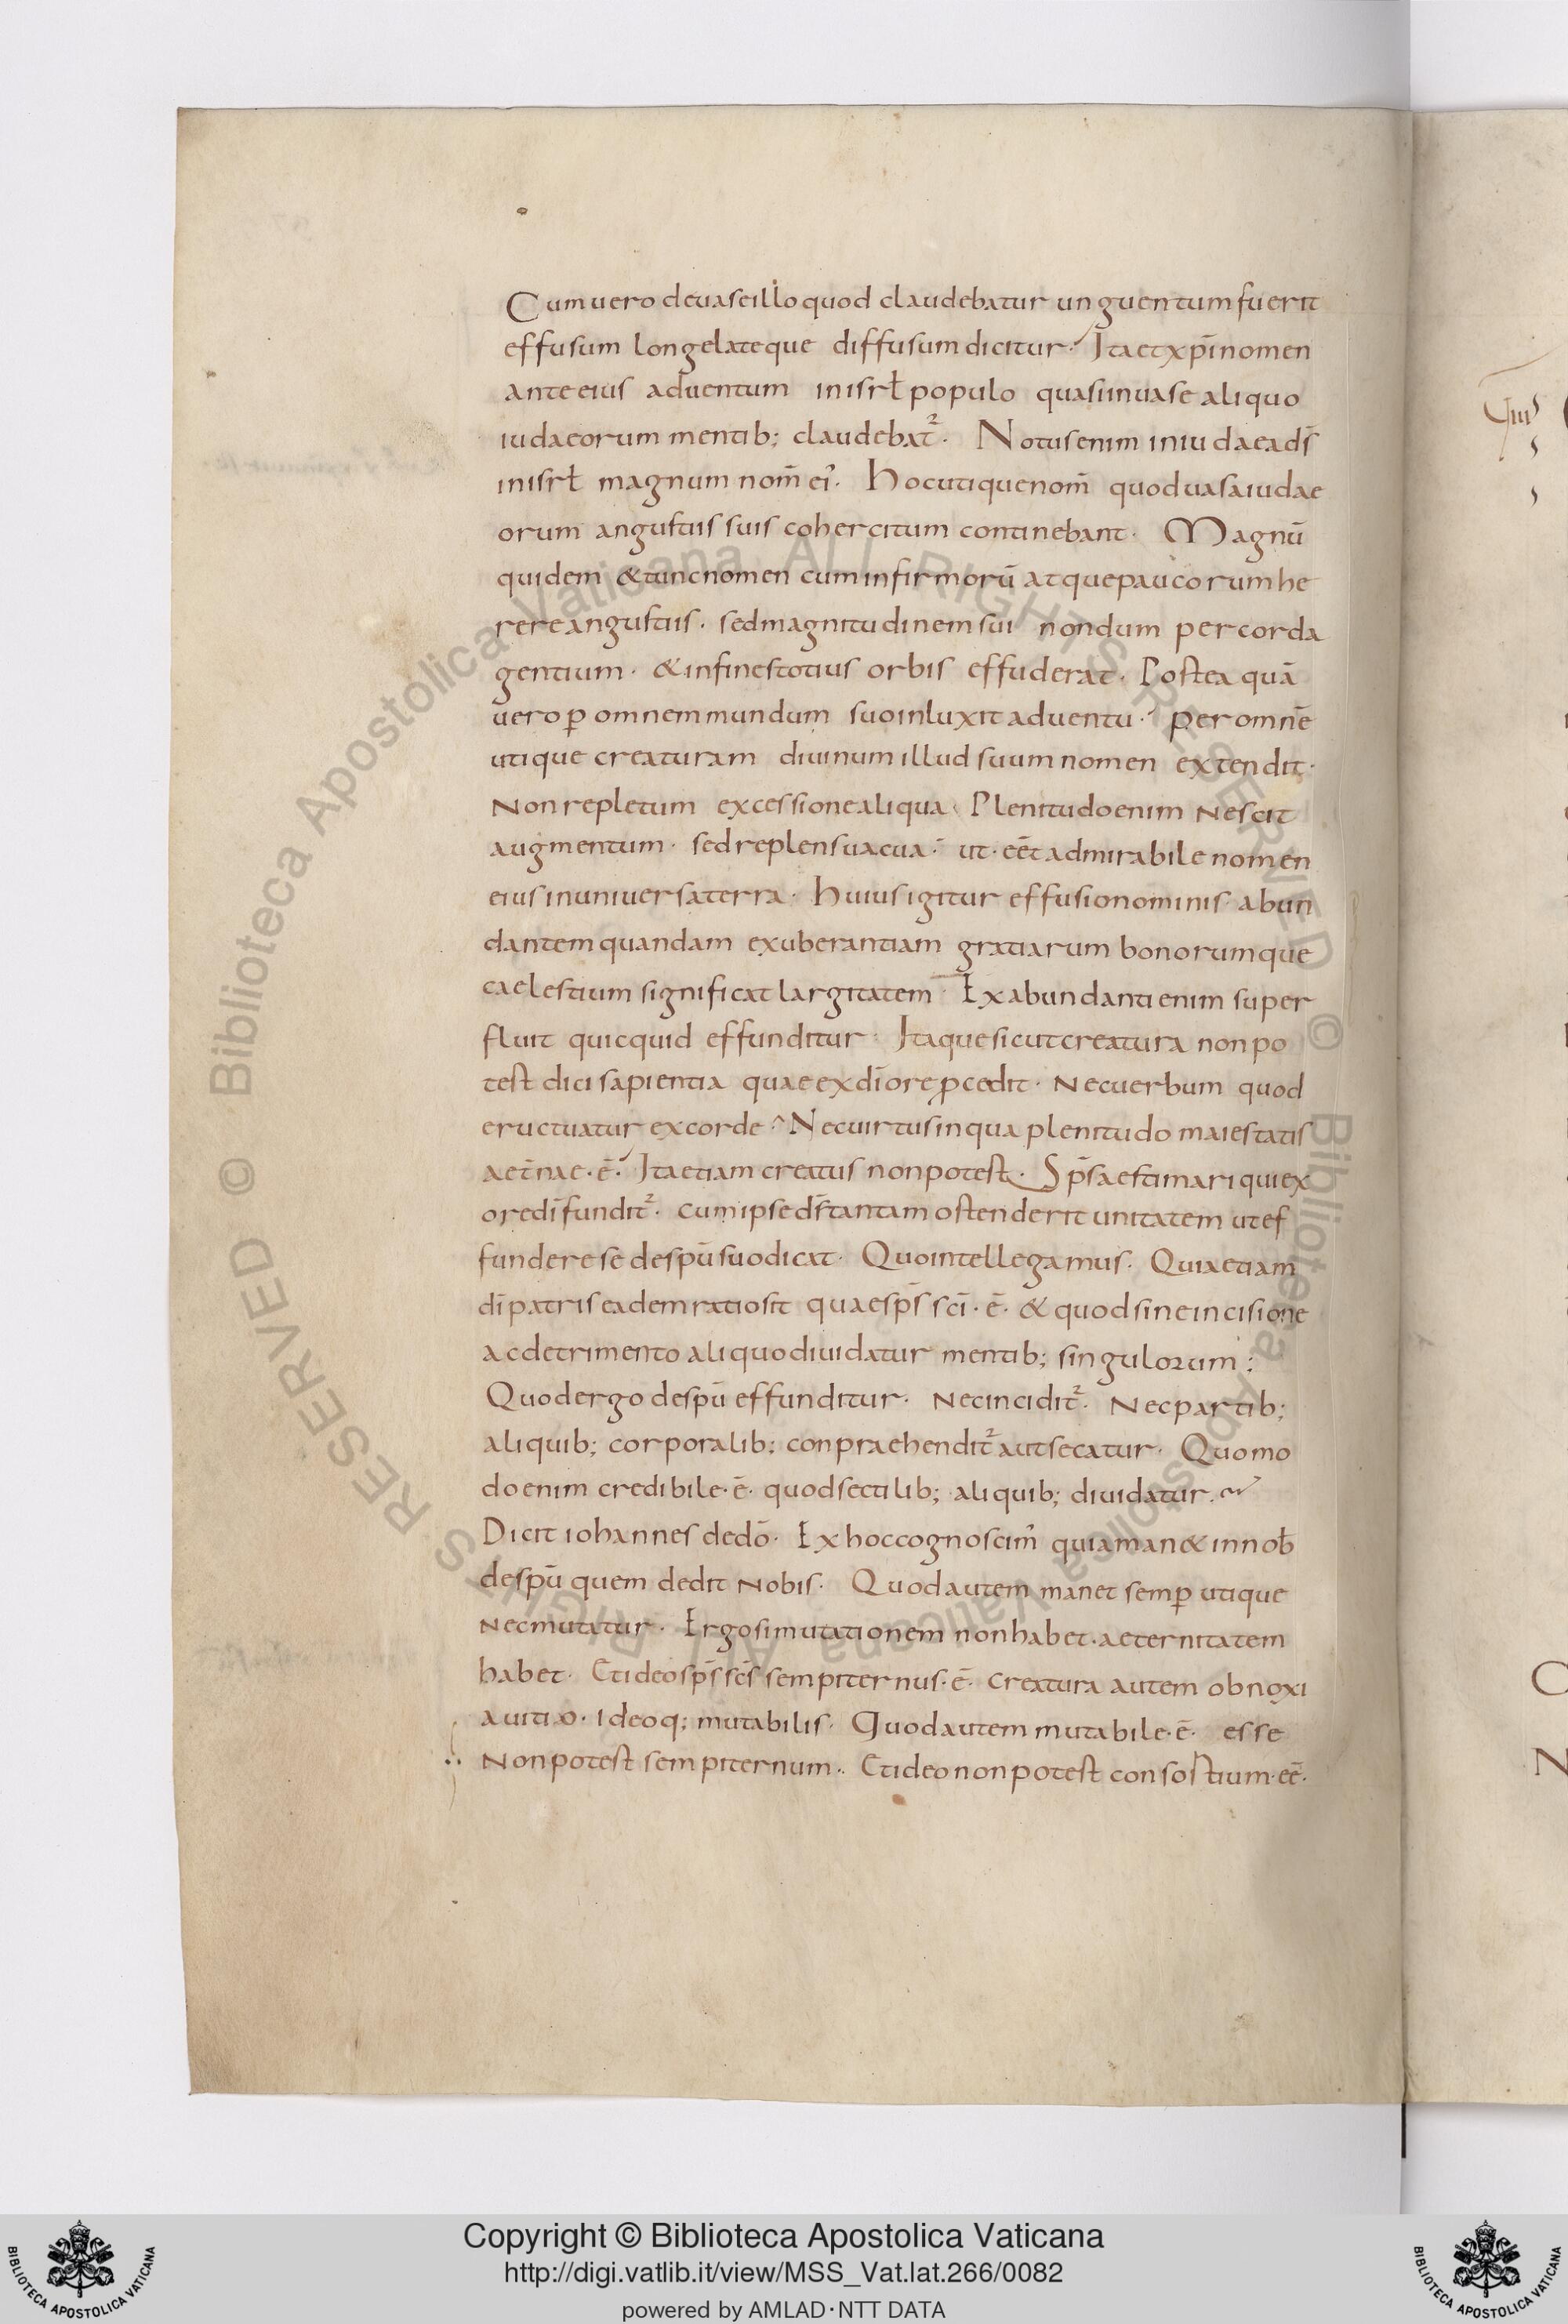 Cum uero deuase illo quod claudebatur unguentum fuerit
effusum longe lateque diffusum dicitur. Ita et xp̄i nomen
ante eius aduentum in isrł populo quasi in uase aliquo
iudaeorum mentib; claudebat̄². Notus enim in iudaea ds̄
in isrł magnum nom̄ ei'. Hoc utique nom̄ quod uasa iudae
orum angustiis suis cohercitum continebant. Magnū
quidem & tunc nomen cum infirmorū atque paucorum he
rere angustiis. sed magnitudinem sui nondum per corda
gentium. & in fines totius orbis effuderat. Postea quā
uero ꝑ omnem mundum suo inluxit aduentu. per omnē
utique creaturam diuinum illud suum nomen extendit.
Non repletum excessione aliqua. Plenitudo enim nescit
augmentum. sed replens uacua. ut. eēt admirabile nomen
eius in uniuersa terra. Huius igitur effusio nominis abun
dantem quandam exuberantiam gratiarum bonorumque
caelestium significat largitatem. Ex abundanti enim super
fluit quicquid effunditur. Itaque sicut creatura non po
test dici sapientia quae ex dī ore ꝓcedit. Nec uerbum quod
eructuatur ex corde. Nec uirtus in qua plenitudo maiestatis
aet̄nae. ē. Ita etiam creatus non potest. Sps̄ aestimari qui ex
ore dī fundit². cum ipse ds̄ tantam ostenderit unitatem ut ef
fundere se de spū suo dicat. Quo intellegamus. Quia etiam
dī patris eadem ratio sit quae sps̄ scī. ē. & quod sine incisione
ac detrimento aliquo diuidatur mentib; singulorum;
Quod ergo de spū effunditur. Nec incidit². Nec partib;
aliquib; corporalib; conpraehendit² aut secatur. Quomo
do enim credibile. ē. quod sectilib; aliquib; diuidatur.
Dicit iohannes de dō. Ex hoc cognoscim' quia man& in nob̄
de spū quem dedit nobis. Quod autem manet semꝑ utique
Nec mutatur. Ergo si mutationem non habet. aeternitatem
habet. Et ideo sps̄ scs̄ sempiternus. ē. Creatura autem obnoxi
a uitio. Ideoq; mutabilis. Quod autem mutabile. ē. esse
Non potest sempiternum. Et ideo non potest consostium. eē.
Copyright © Biblioteca Apostolica Vaticana
http://digi.vatlib.it/view/MSS_Vat.lat.266/0082
powered by AMLAD·NTT DATA